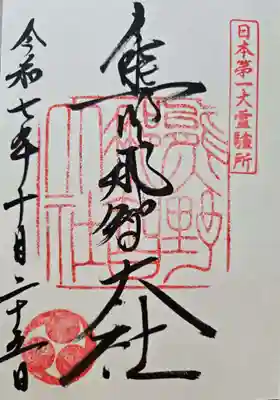 日本第一大霊験所
熊野那智大社
令和七年十月二十五日